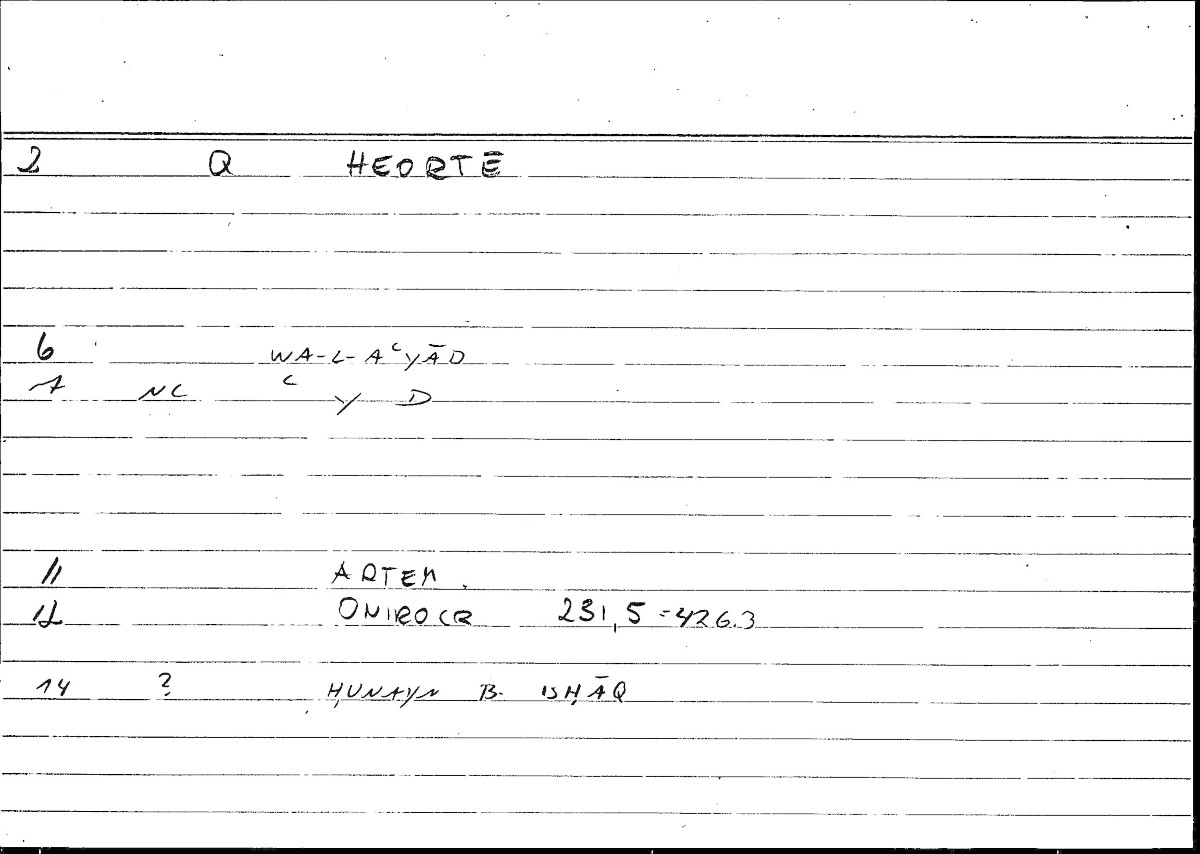 2 Q HEORTĒ
6 WA-L-AʿYĀD
7 NC ʿ Y D
11 ARTEM.
12 ONIROCR 231,5 = 426.3
14 ? ḤUNAYN B. ISḤĀQ